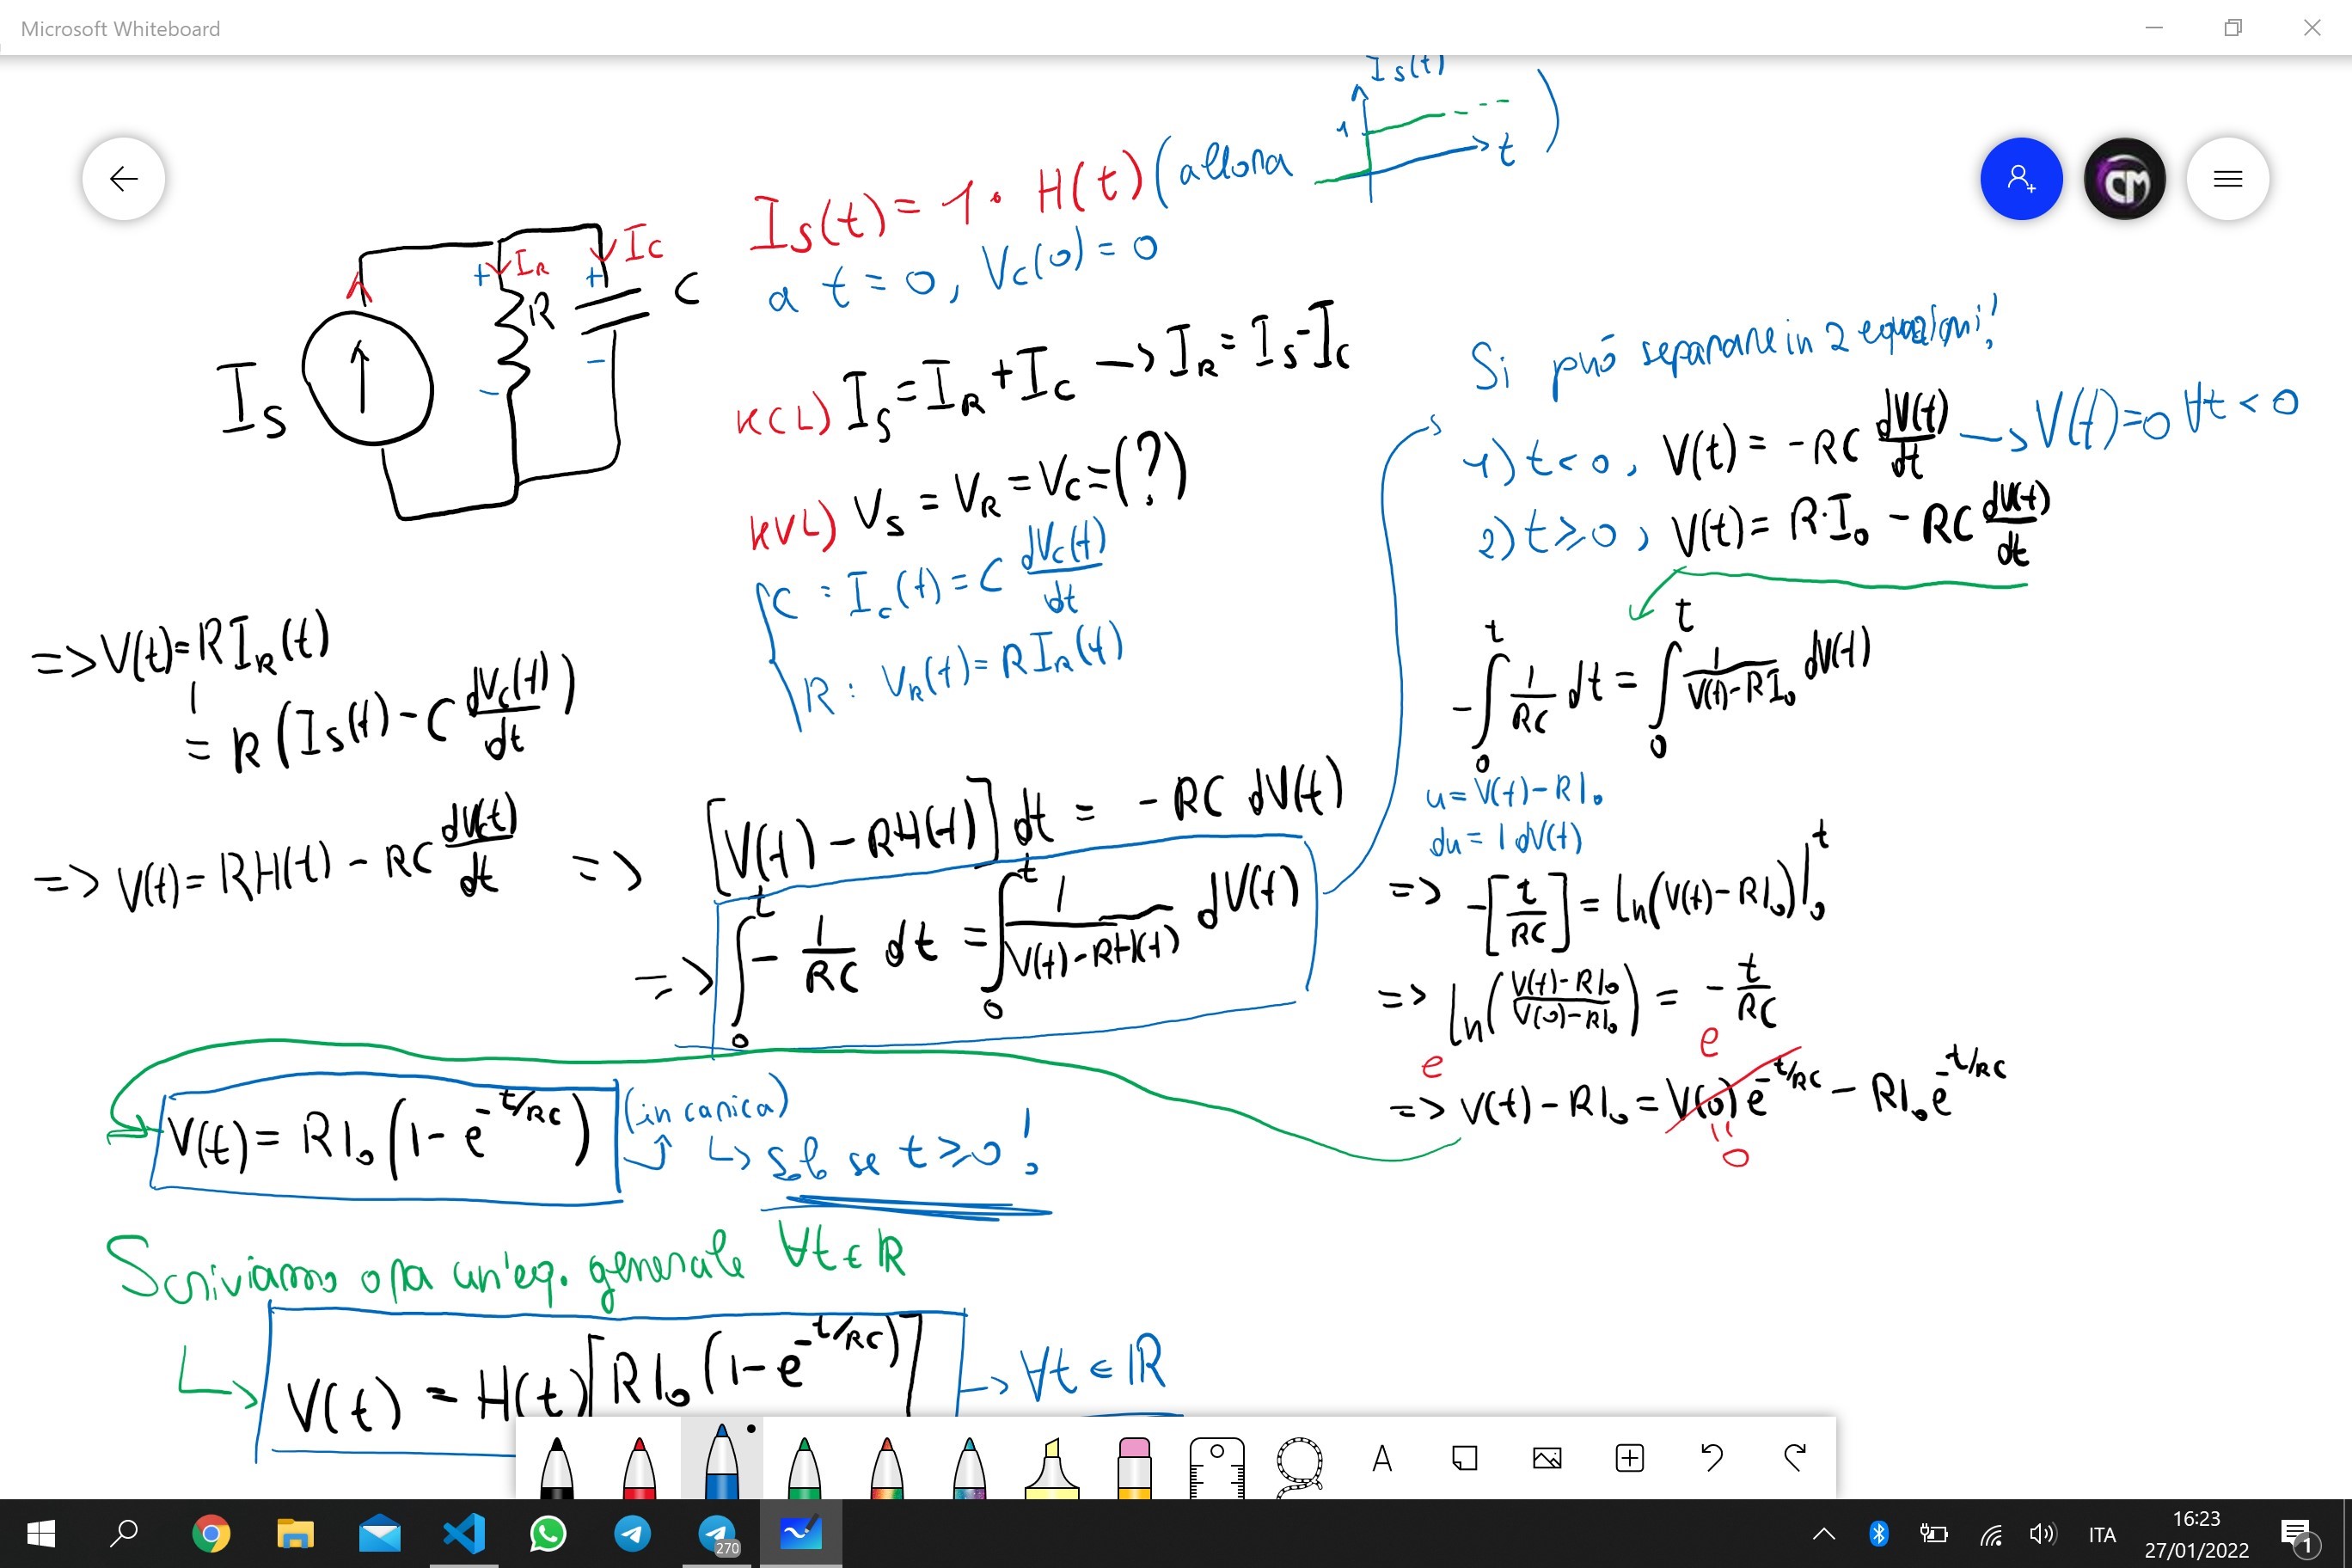 Microsoft Whiteboard
Is(t)
1
t
Is(t) = 1 · H(t) (allora )
a t = 0, Vc(0) = 0
Is
+ IR
R
-
+ Ic
C
-
KCL) Is = IR + Ic —> IR = Is - Ic
KVL) Vs = VR = Vc = (?)
C : Ic(t) = C dVc(t)/dt
R : VR(t) = R IR(t)
=> V(t) = R IR(t)
= R (Is(t) - C dVc(t)/dt)
=> V(t) = RH(t) - RC dVc(t)/dt => [V(t) - RH(t)] dt = - RC dV(t)
=> ∫₀ᵗ - 1/RC dt = ∫₀ᵗ 1/(V(t) - RH(t)) dV(t)
Si può separare in 2 equazioni!
1) t < 0, V(t) = - RC dV(t)/dt —> V(t) = 0 ∀t < 0
2) t ≥ 0, V(t) = R·I₀ - RC dV(t)/dt
- ∫₀ᵗ 1/RC dt = ∫₀ᵗ 1/(V(t) - RI₀) dV(t)
u = V(t) - RI₀
du = 1 dV(t)
=> -[t/RC] = ln(V(t) - RI₀)|₀ᵗ
=> ln((V(t) - RI₀)/(V(0) - RI₀)) = - t/RC
e e
=> V(t) - RI₀ = V(0) e^(-t/RC) - RI₀ e^(-t/RC)
= 0
V(t) = RI₀ (1 - e^(-t/RC)) (in carica)
-> solo se t ≥ 0!
Scriviamo ora un'eq. generale ∀t ∈ ℝ
-> V(t) = H(t) [RI₀ (1 - e^(-t/RC))] -> ∀t ∈ ℝ
CM
A
270
ITA
16:23
27/01/2022
1